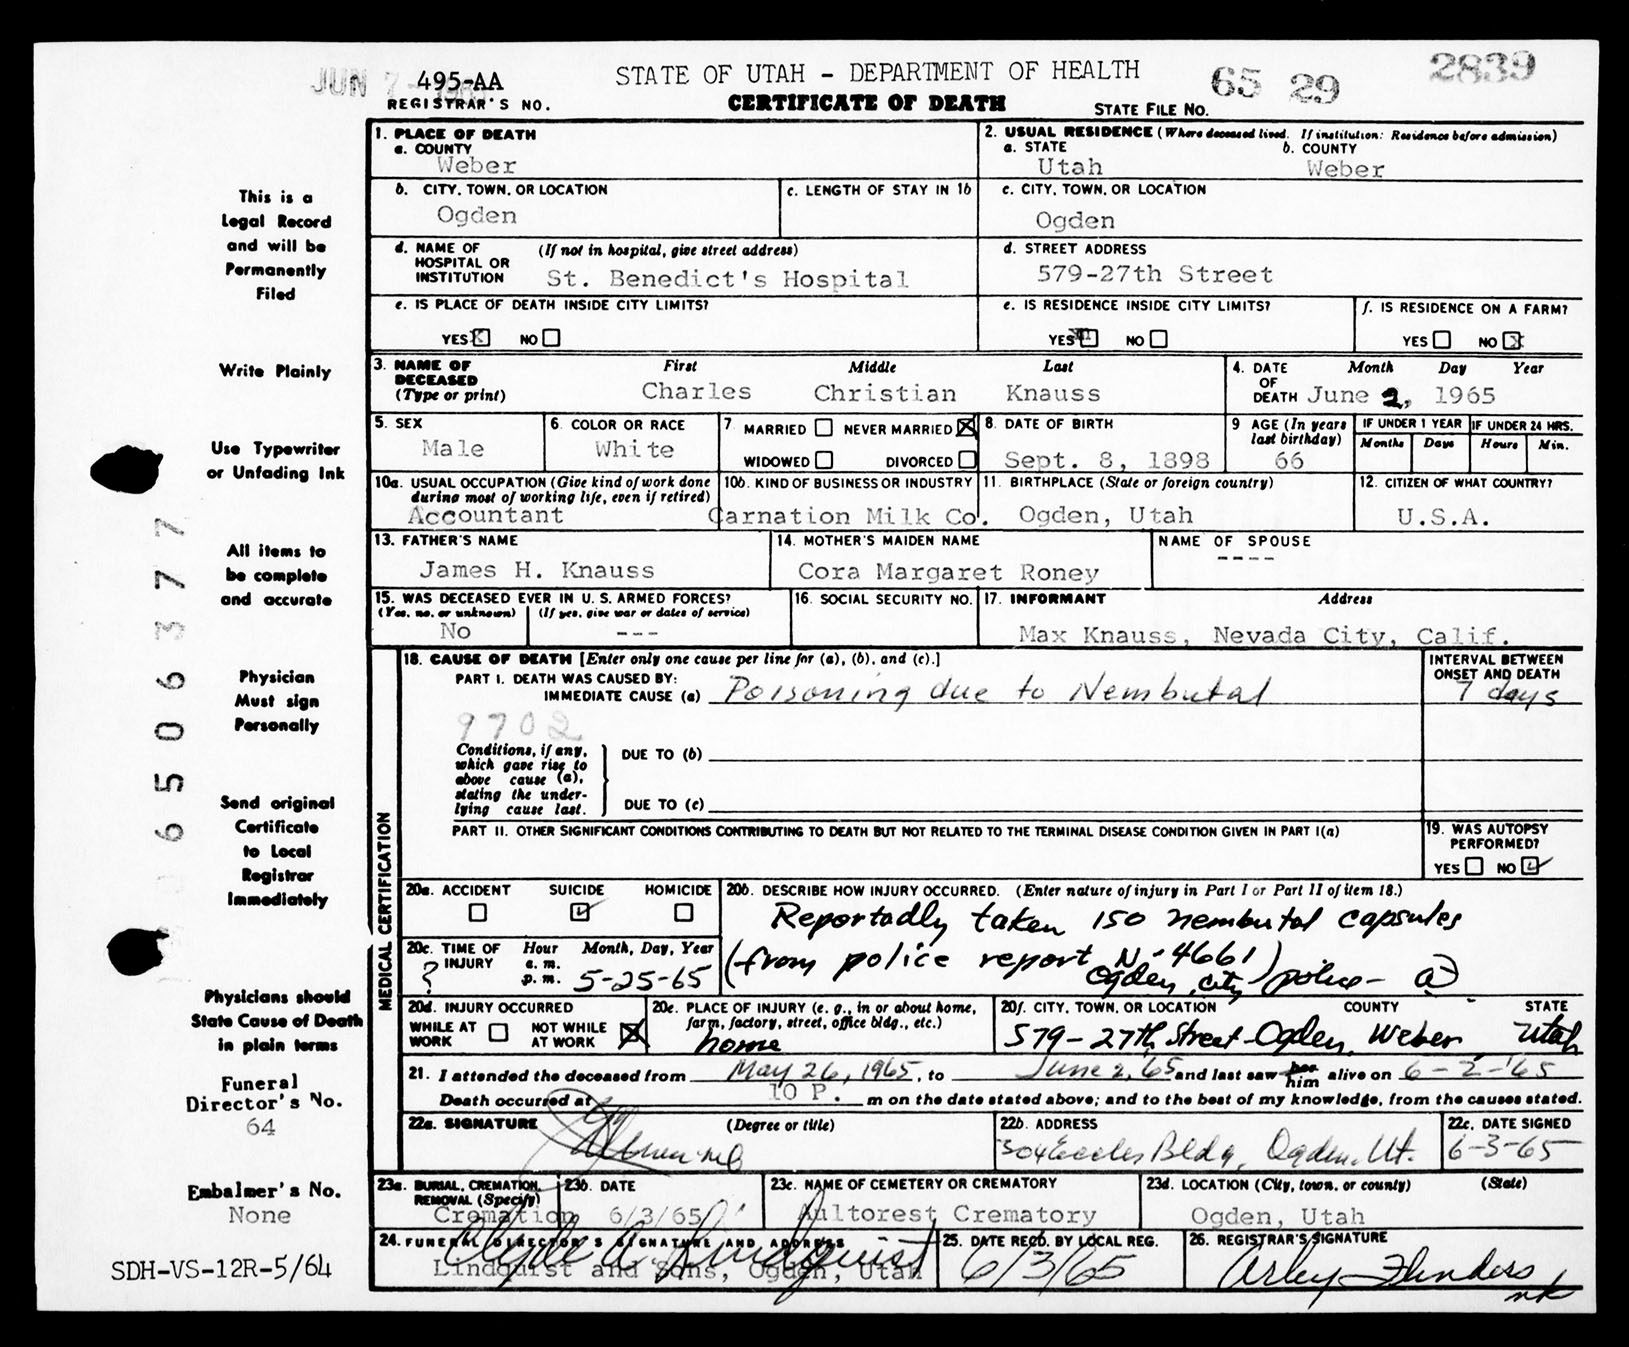 JUN 7 - 196
495-AA
REGISTRAR'S NO.
STATE OF UTAH - DEPARTMENT OF HEALTH
CERTIFICATE OF DEATH
STATE FILE NO.
65 29 2839
This is a
Legal Record
and will be
Permanently
Filed
Write Plainly
Use Typewriter
or Unfading Ink
All items to
be complete
and accurate
Physician
Must sign
Personally
Send original
Certificate
to Local
Registrar
Immediately
Physicians should
State Cause of Death
in plain terms
Funeral
Director's No.
64
Embalmer's No.
None
SDH-VS-12R-5/64
6506377
1. PLACE OF DEATH
a. COUNTY
Weber
2. USUAL RESIDENCE (Where deceased lived. If institution: Residence before admission)
a. STATE b. COUNTY
Utah Weber
b. CITY, TOWN, OR LOCATION
Ogden
c. LENGTH OF STAY IN 1b
c. CITY, TOWN, OR LOCATION
Ogden
d. NAME OF HOSPITAL OR INSTITUTION (If not in hospital, give street address)
St. Benedict's Hospital
d. STREET ADDRESS
579-27th Street
e. IS PLACE OF DEATH INSIDE CITY LIMITS?
YES X NO
e. IS RESIDENCE INSIDE CITY LIMITS?
YES NO
f. IS RESIDENCE ON A FARM?
YES NO X
3. NAME OF DECEASED (Type or print)
First Middle Last
Charles Christian Knauss
4. DATE OF DEATH Month Day Year
June 2, 1965
5. SEX
Male
6. COLOR OR RACE
White
7. MARRIED NEVER MARRIED X
WIDOWED DIVORCED
8. DATE OF BIRTH
Sept. 8, 1898
9 AGE (In years last birthday)
66
IF UNDER 1 YEAR IF UNDER 24 HRS.
Months Days Hours Min.
10a. USUAL OCCUPATION (Give kind of work done during most of working life, even if retired)
Accountant
10b. KIND OF BUSINESS OR INDUSTRY
Carnation Milk Co.
11. BIRTHPLACE (State or foreign country)
Ogden, Utah
12. CITIZEN OF WHAT COUNTRY?
U.S.A.
13. FATHER'S NAME
James H. Knauss
14. MOTHER'S MAIDEN NAME
Cora Margaret Roney
NAME OF SPOUSE
----
15. WAS DECEASED EVER IN U. S. ARMED FORCES?
(Yes, no, or unknown) (If yes, give war or dates of service)
No ---
16. SOCIAL SECURITY NO.
17. INFORMANT Address
Max Knauss, Nevada City, Calif.
MEDICAL CERTIFICATION
18. CAUSE OF DEATH [Enter only one cause per line for (a), (b), and (c).]
PART I. DEATH WAS CAUSED BY:
IMMEDIATE CAUSE (a) Poisoning due to Nembutal
INTERVAL BETWEEN ONSET AND DEATH
7 days
9702
Conditions, if any, which gave rise to above cause (a), stating the underlying cause last.
DUE TO (b)
DUE TO (c)
PART II. OTHER SIGNIFICANT CONDITIONS CONTRIBUTING TO DEATH BUT NOT RELATED TO THE TERMINAL DISEASE CONDITION GIVEN IN PART I(a)
19. WAS AUTOPSY PERFORMED?
YES NO ✓
20a. ACCIDENT SUICIDE HOMICIDE
✓
20b. DESCRIBE HOW INJURY OCCURRED. (Enter nature of injury in Part I or Part II of item 18.)
Reportadly taken 150 nembutal capsules
(from police report N-4661)
Ogden city police -
20c. TIME OF INJURY Hour Month, Day, Year
? a. m. p. m. 5-25-65
20d. INJURY OCCURRED
WHILE AT WORK NOT WHILE AT WORK X
20e. PLACE OF INJURY (e. g., in or about home, farm, factory, street, office bldg., etc.)
home
20f. CITY, TOWN, OR LOCATION COUNTY STATE
579-27th Street-Ogden, Weber Utah
21. I attended the deceased from May 26, 1965, to June 2, 65 and last saw her him alive on 6-2-'65
Death occurred at 10 P. m on the date stated above; and to the best of my knowledge, from the causes stated.
22a. SIGNATURE (Degree or title)
22b. ADDRESS
304 Eccles Bldg, Ogden, Ut.
22c. DATE SIGNED
6-3-65
23a. BURIAL, CREMATION, REMOVAL (Specify)
Cremation
23b. DATE
6/3/65
23c. NAME OF CEMETERY OR CREMATORY
Aultorest Crematory
23d. LOCATION (City, town, or county) (State)
Ogden, Utah
24. FUNERAL DIRECTOR'S SIGNATURE AND ADDRESS
Clyde A. Lindquist
Lindquist and Sons, Ogden, Utah
25. DATE RECD. BY LOCAL REG.
6/3/65
26. REGISTRAR'S SIGNATURE
Arley Flinders
nk